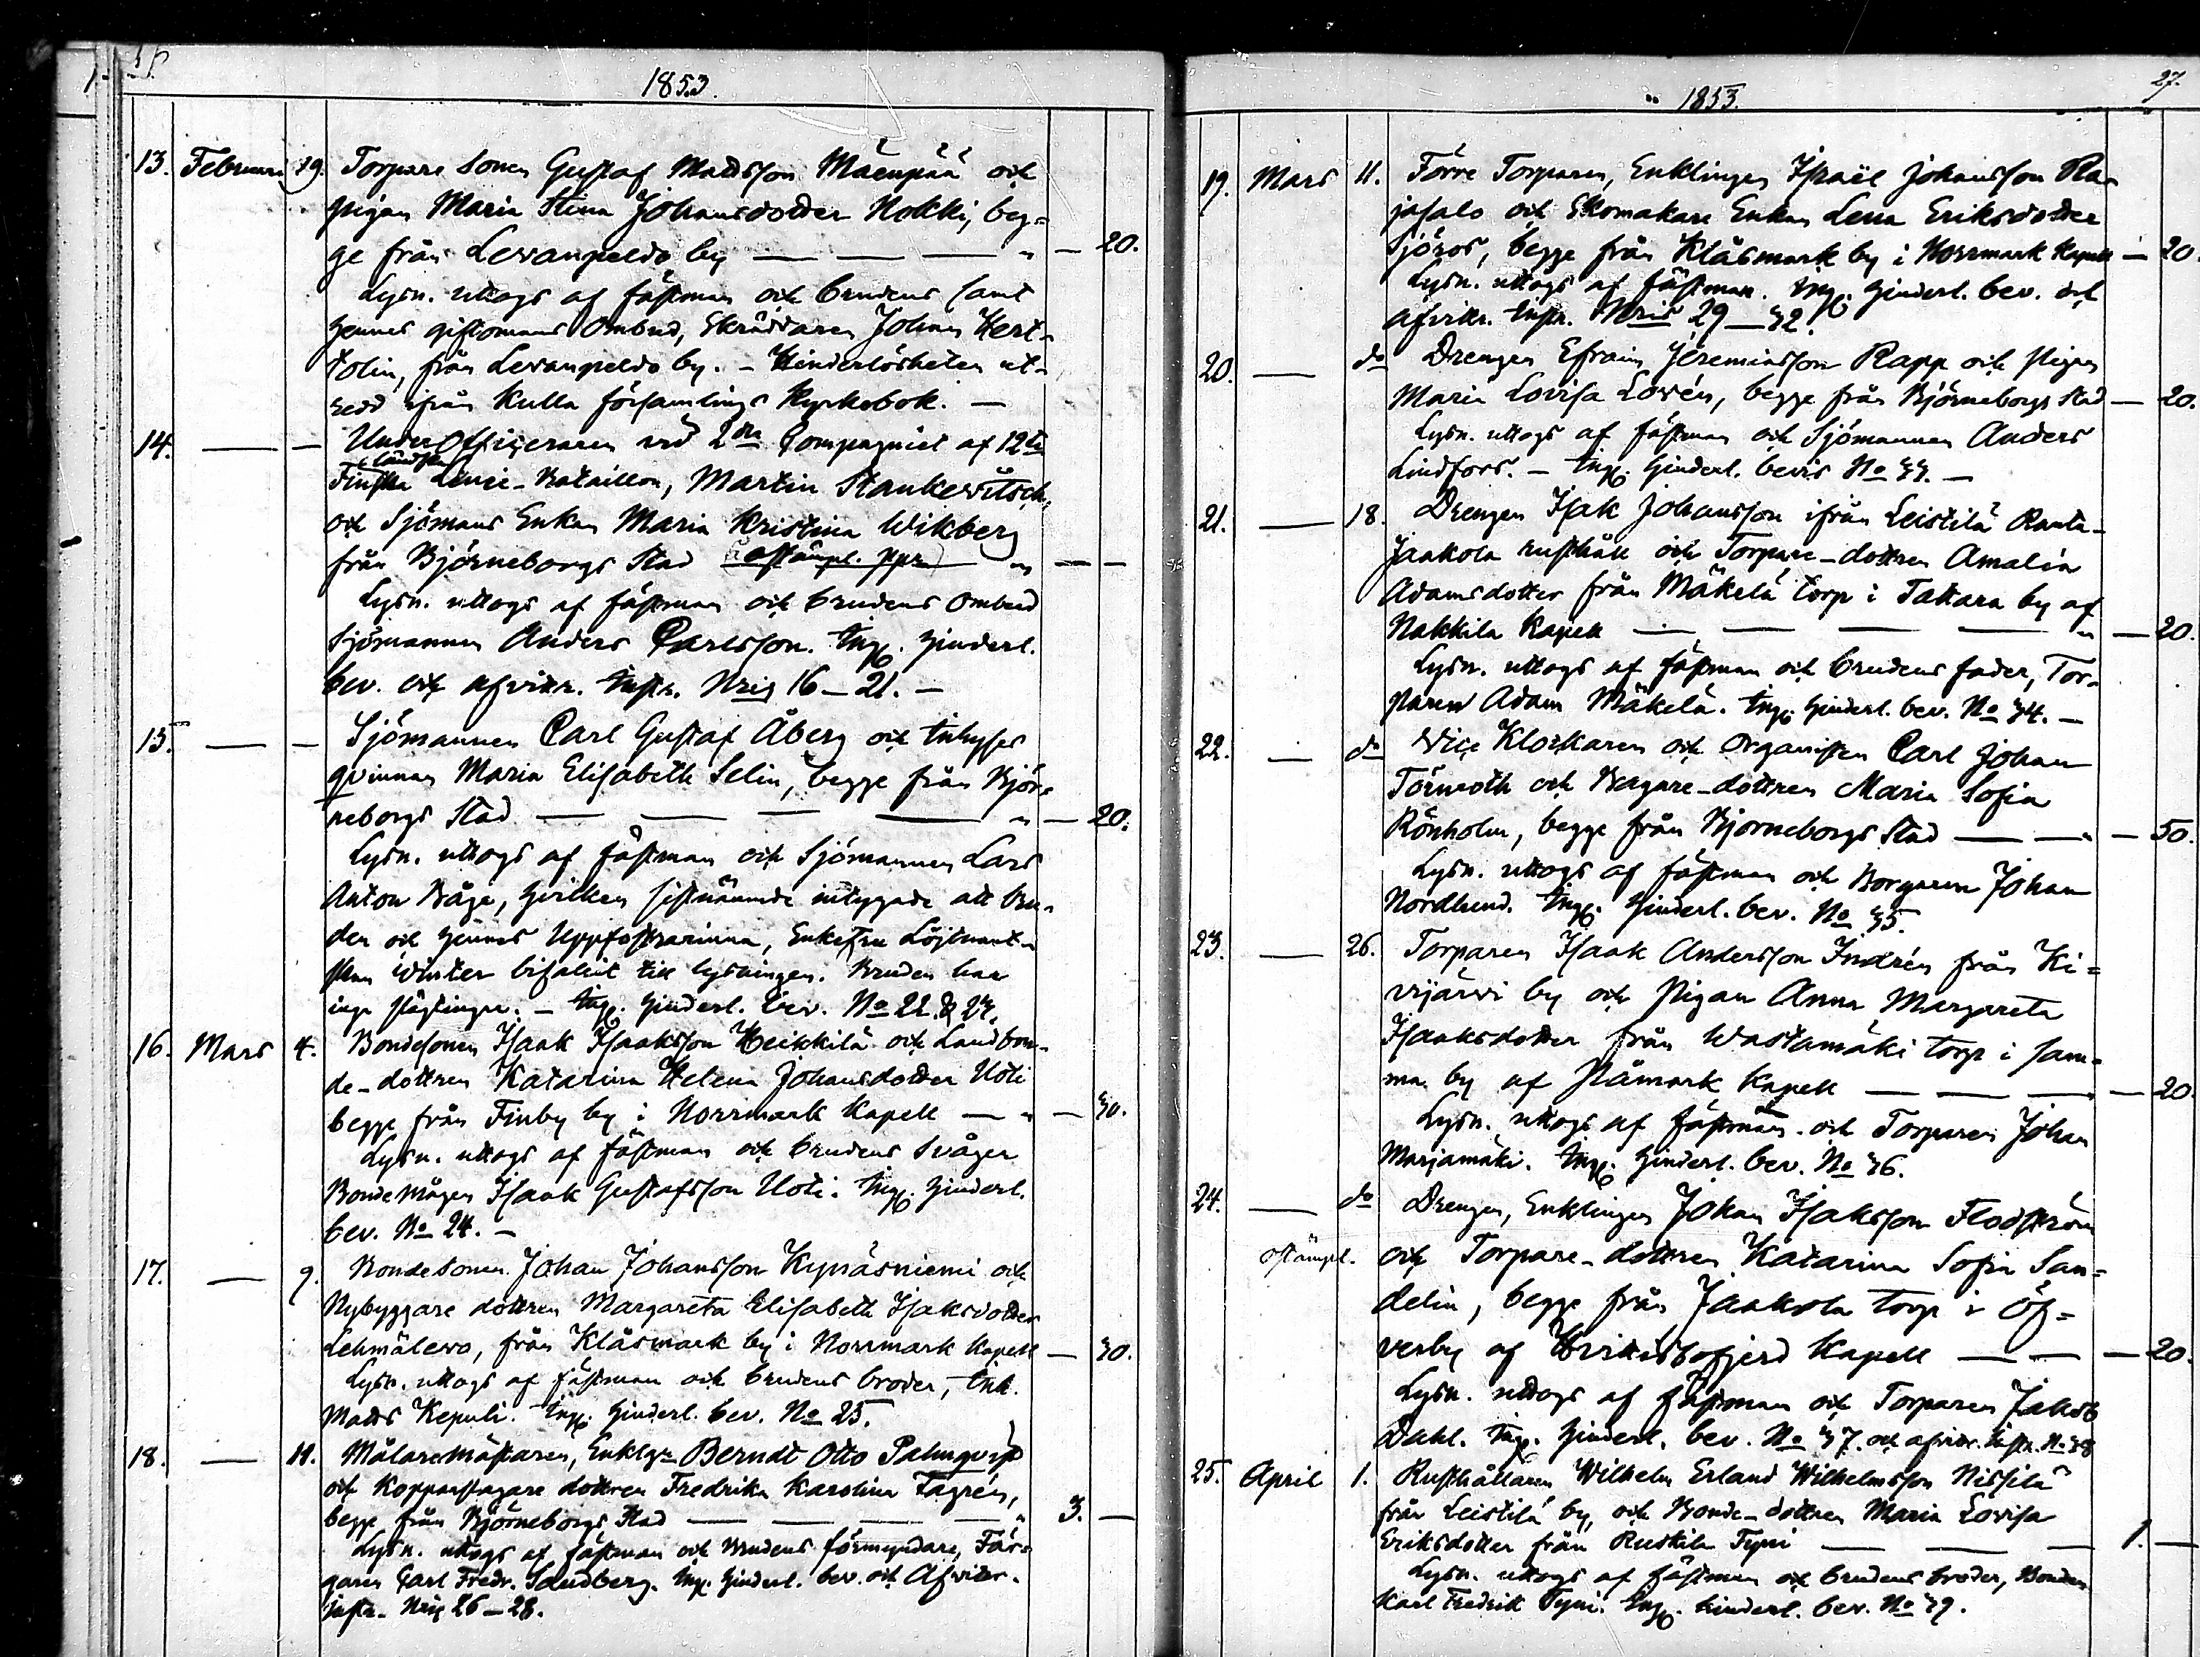 1853.
13. Februari 19. Torpare Sonen Gustaf Mattsson Mäenpää och
pigan Maria Stina Johansdotter Nokki, beg=
ge från Levanpeldo by — — — " — 20.
Lysn. uttogs af fästman och brudens samt
hennes giftomans Ombud, Skräddaren Johan Hert-
tolin, från Levanpeldo by. – Hinderlösheten ut-
redd ifrån Kulla församlings Kyrkobok. —
14. — — Under Officeraren vid 2dra Compagniet af 12te
Finska ländska Linie-Bataillon, Martin Stankewitsch,
och Sjömans Enkan Maria Kristina Wikberg
från Björneborgs Stad (å ostämpl. ppr) " — —
Lysn. uttogs af fästman och brudens Ombud
Sjömannen Anders Carlsson. Ing. hinderl.
bev. och afvittr. Instr. Nris 16–21. –
15. — — Sjömannen Carl Gustaf Åberg och Inhyses
qvinnan Maria Elisabeth Selin, begge från Björ-
neborgs Stad — — — — " — 20.
Lysn. uttogs af fästman och Sjömannen Lars
Anton Båge, hvilken sistnämnde intygade att Bru-
den och hennes Uppfostrarinna, Enkefru Löjtnant-
skan Winter bifallit till lysningen. Bruden har
inga slägtingar. – Ing. hinderl. bev. No 22 & 23.
16. Mars 4. Bondesonen Isaak Isaaksson Heikkilä och Landbon-
de-dottren Katarina Helena Johansdotter Uoti
begge från Finby by i Norrmark Kapell — " — 30.
Lysn. uttogs af fästman och brudens Svåger
Bondemågen Isaak Gustafsson Uoti. Ing. hinderl.
bev. No 24. –
17. — 9. Bondesonen Johan Johansson Kynäsniemi och
Nybyggare dottren Margareta Elisabeth Isaksdotter
Lehmälewo, från Klåsmark by i Norrmark Kapell — 30.
Lysn. uttogs af fästman och brudens broder, Inh.
Matts Kepuli. Ing. hinderl. bev. No 25.
18. — 11. Målaremästaren, Enklgn Berndt Otto Palmqvist
och Kopparslagare dottren Fredrika Karolina Fagrén,
begge från Björneborgs Stad — — — — " 3. —
Lysn. uttogs af fästman och Brudens förmyndare, Fär-
garen Carl Fredr. Sandberg. Ing. hinderl. bev. och Afvittr.
instr. Nris 26–28.
1853. 27.
19. Mars 11. Förre Torparen, Enklingen Israël Johansson Ra-
jasalo och Skomakare Enkan Lena Eriksdotter
Sjöros, begge från Klåsmark by i Norrmark Kapell — 20.
Lysn. uttogs af fästman. Ing. hinderl. bev. och
afvittr. Instr. Nris 29–32.
20. — do Drengen Efraim Jeremiasson Rapp och Pigan
Maria Lovisa Lovén, begge från Björneborgs Stad — 20.
Lysn. uttogs af fästman och Sjömannen Anders
Lindfors. – Ing. hinderl. bevis No 33. –
21. — 18. Drengen Isak Johansson ifrån Leistilä Ranta-
Jaakola rusthåll och Torpare-dottren Amalia
Adamsdotter från Mäkelä torp i Tattara by af
Nakkila Kapell — — — — " — 20.
Lysn. uttogs af fästman och brudens fader, Tor-
paren Adam Mäkelä. Ing. hinderl. bev. No 34. –
22. — do Vice Klockaren och Organisten Carl Johan
Törnroth och Bagare-dottren Maria Sofia
Rönholm, begge från Björneborgs Stad — — " — 50.
Lysn. uttogs af fästman och Borgaren Johan
Nordlund. Ing. hinderl. bev. No 35.
23. — 26. Torparen Isaak Andersson Indrén från Ki=
vijärvi by och Pigan Anna Margareta
Isaaksdotter från Wastamäki torp i sam=
ma by af Påmark Kapell — — — — 20.
Lysn. uttogs af fästman och Torparen Johan
Marjamäki. Ing. hinderl. bev. No 36.
24. — do Drengen, Enklingen Johan Isaksson Flodström
ostämpl. och Torpare-dottren Katarina Sofia San=
delin, begge från Jaakola torp i Öf=
verby af Hvittisbofjerd Kapell — — — 20.
Lysn. uttogs af fästman och Torparen Jakob
Dahl. Ing. hinderl. bev. No 37. och afvittr. Instr. No 38
25. April 1. Rusthållaren Wilhelm Erland Wilhelmsson Nissilä
från Leistilä by, och Bonde-dottren Maria Lovisa
Eriksdotter från Ruskila Tyni — — — 1. —
Lysn. uttogs af fästman och brudens broder, Bonden
Karl Fredrik Tyni. Ing. hinderl. bev. No 39.